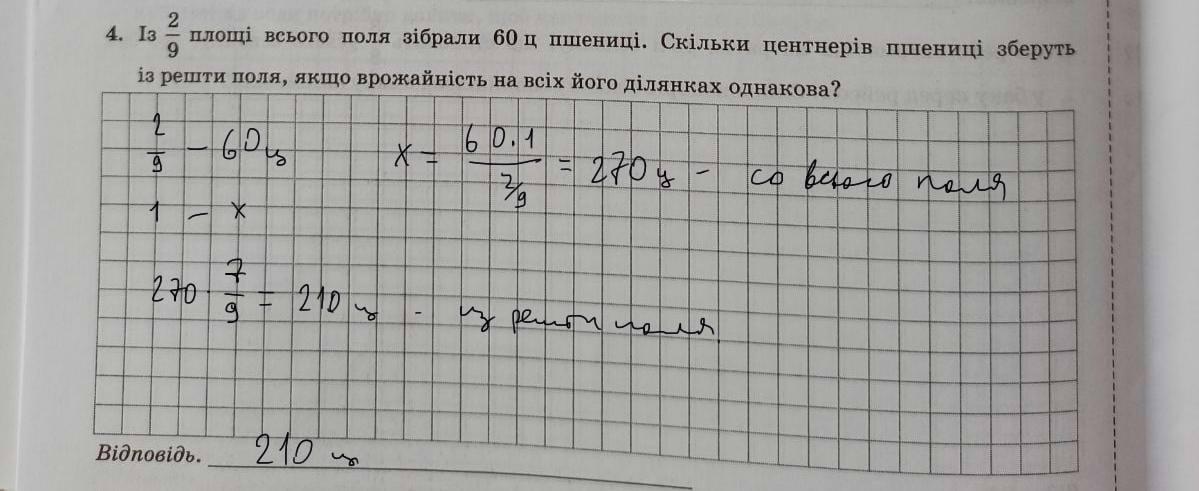 4. Із 2/9 площі всього поля зібрали 60 ц пшениці. Скільки центнерів пшениці зберуть
із решти поля, якщо врожайність на всіх його ділянках однакова?
2/9 – 60 ц   x = (60 · 1)/(2/9) = 270 ц – со всього поля
1 – x
270 · 7/9 = 210 ц - из решти поля
Відповідь. 210 ц